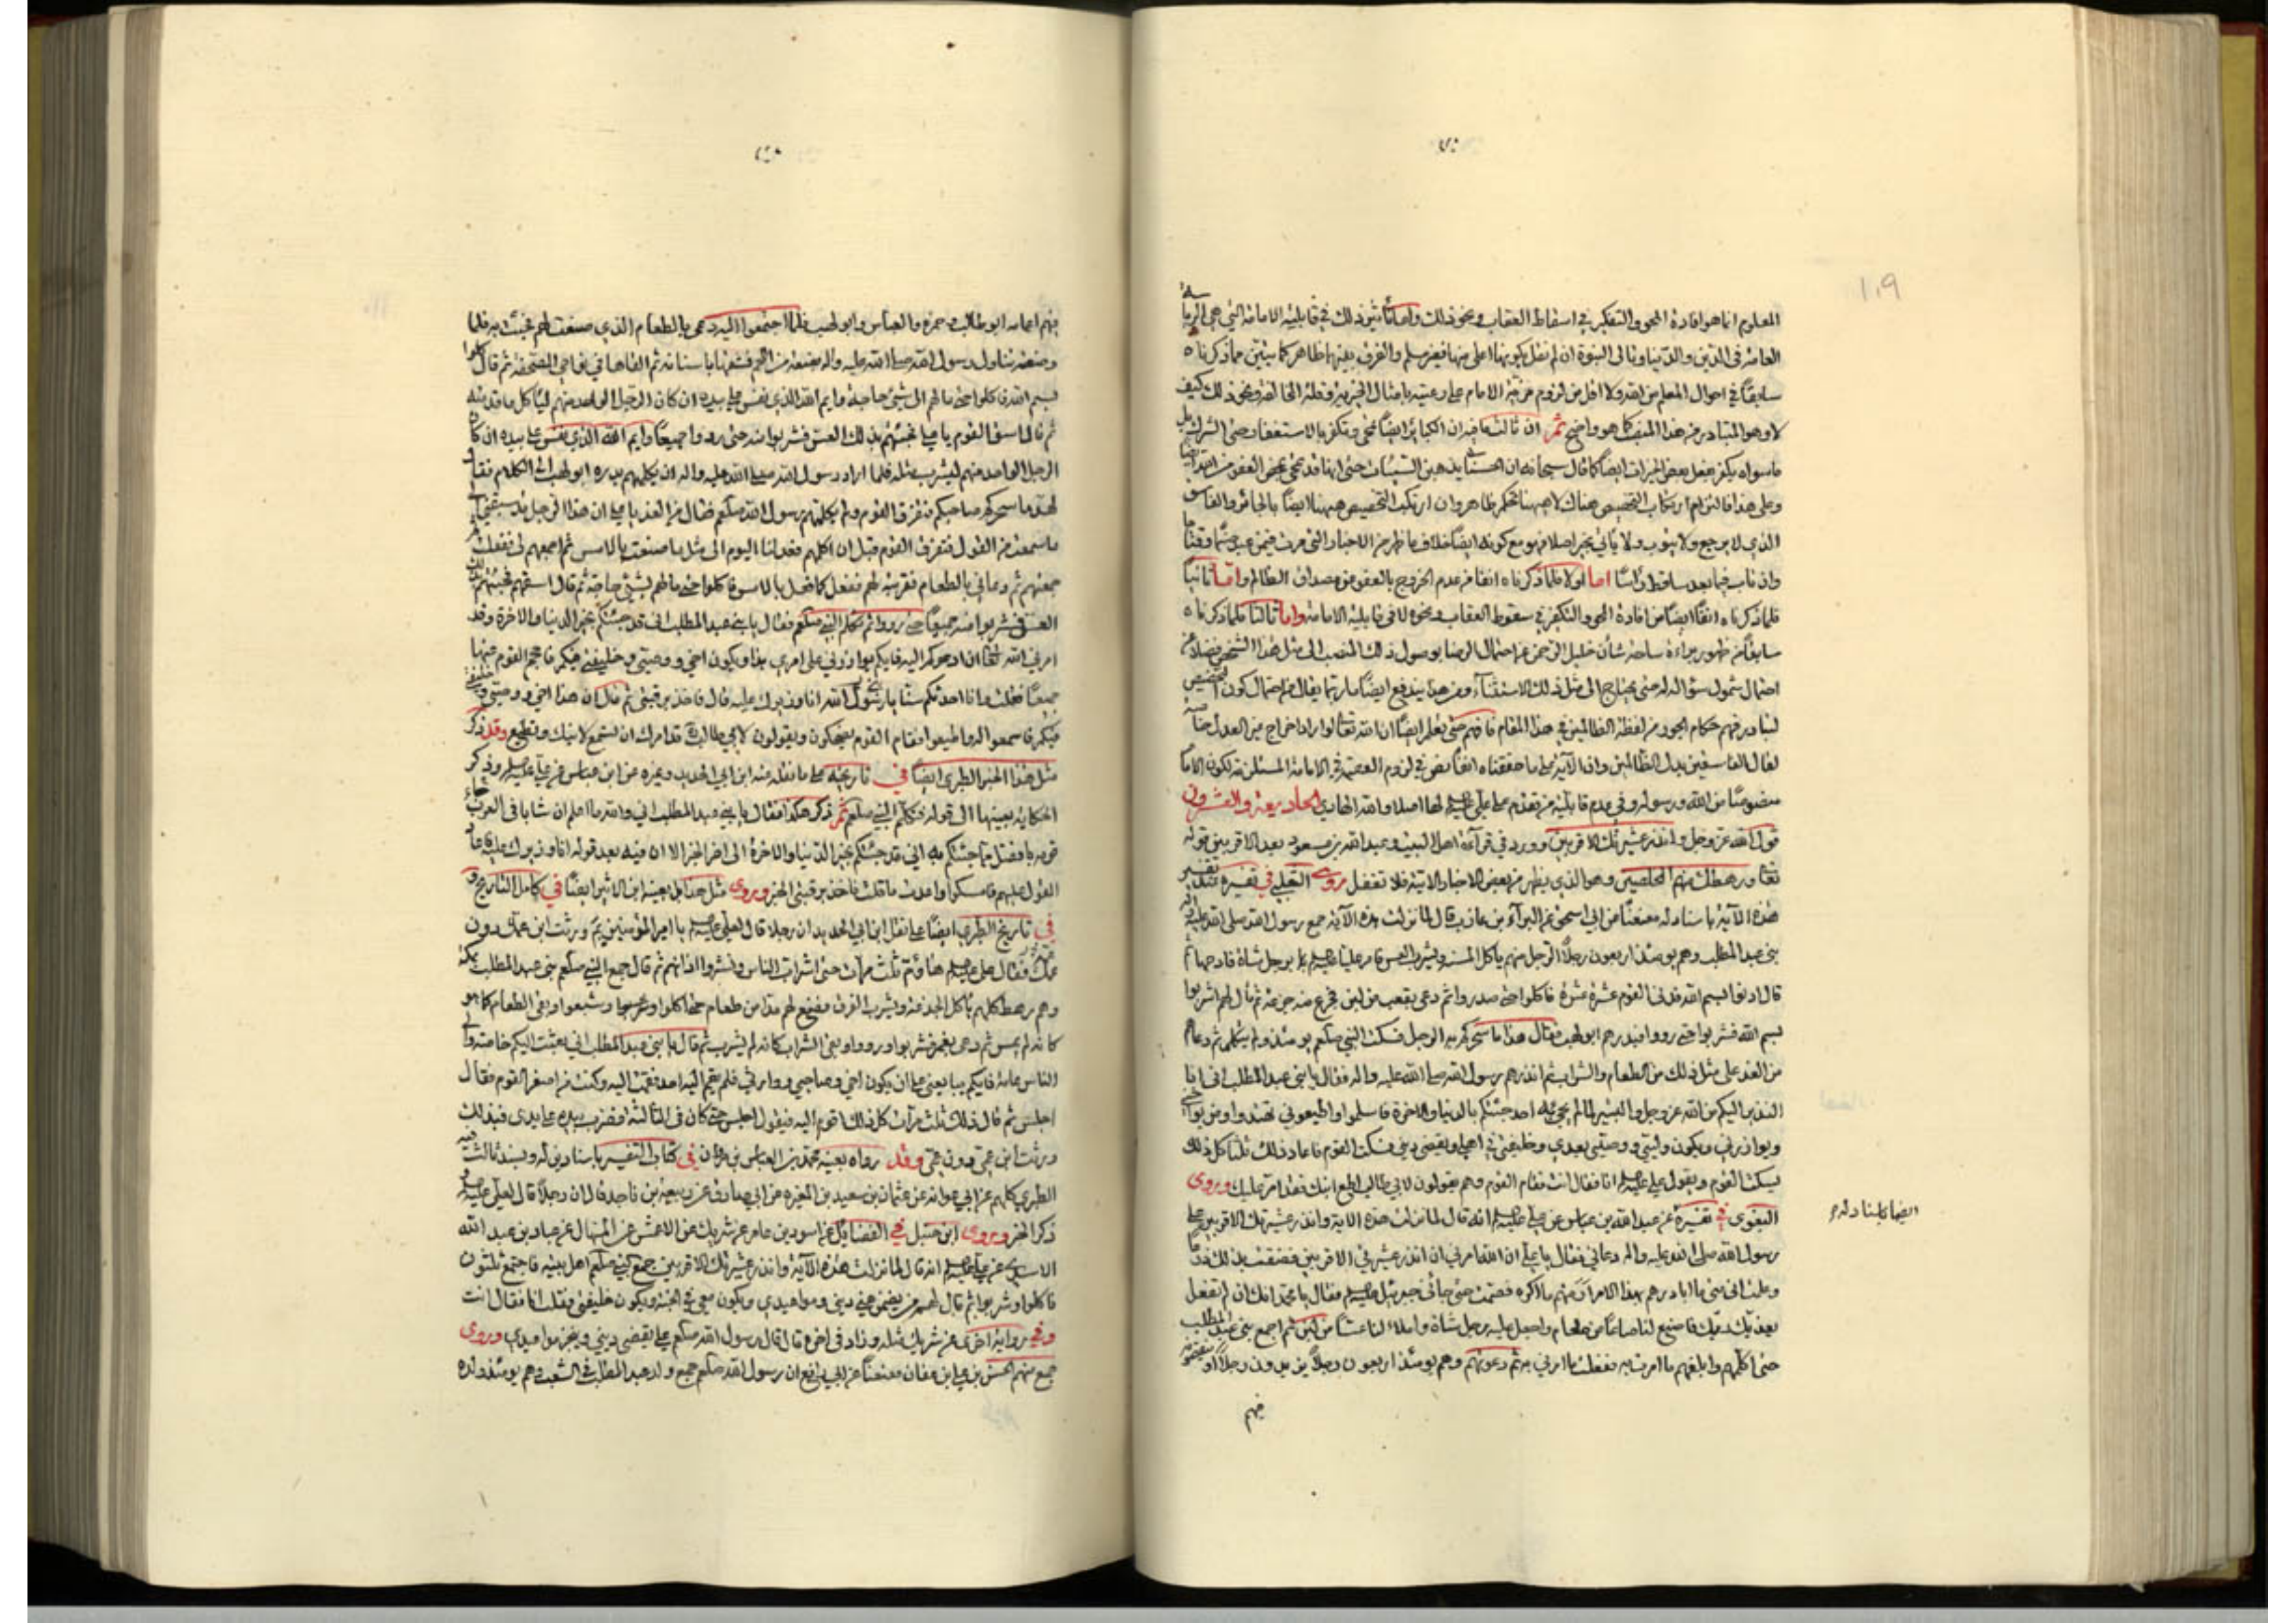 ١٠٩
المعلوم انما هو افادة المحو والتكفير في اسقاط العقاب ونحو ذلك واما تأثير ذلك في قابلية الامامة التي هي الرياسة
العامة في الدين والدنيا وتالي النبوة ان لم نقل بكونها اعلى منها فغير مسلم والفرق بينهما ظاهر كما يتبين مما ذكرناه
سابقًا في احوال المعلم من الله ولا اقل من لزوم مزية الامام على رعيته بامثال الخيرية وقلة المخالفة ونحو ذلك كيف
لا وهو المتبادر من هذا المنصب كما هو واضح ثم ان ثالث ما فيه ان الكبائر ايضًا تمحى وتكفر بالاستغفار حتى الشرك بل
ما سواه يكفر بفعل بعض الخيرات ايضًا كما قال سبحانه ان الحسنات يذهبن السيئات حتى انها قد تمحى بمحض العفو من الله ايضا
وعلى هذا فالتزام ارتكاب التخصيص هناك لا ههنا تحكم ظاهر وان ارتكب التخصيص ههنا ايضًا بالجائر والفاسق
الذي لا يرجع ولا يتوب ولا يأتي بخير اصلا فهو مع كونه ايضًا خلاف ما ظهر من الاخبار التي مرت فيمن عبد صنمًا وقتًا ما
وان تاب فيما بعد ساقط رأسًا اما اولا فلما ذكرناه انفا من عدم الخروج بالعفو عن مصداق الظالم واما ثانيًا
فلما ذكرناه انفًا ايضًا من افادة المحو والتكفير في سقوط العقاب ونحوه لا في قابلية الامامة واما ثالثا فلما ذكرناه
سابقًا من ظهور براءة ساحة شأن خليل الرحمن عن احتمال الرضا بوصول ذلك المنصب الى مثل هذا الشخص فضلا عن
احتمال شمول سؤاله له حتى يحتاج الى مثل ذلك الاستثناء ومن هذا يندفع ايضًا ما ربما يقال من احتمال كون التخصيص
لتبادر فهم حكام الجور من لفظة الظالمين في هذا المقام فافهم حتى تعلم ايضًا ان الله تعالى لو اراد اخراج من العدل خاصة
لقال الفاسقين بدل الظالمين وان الآية على ما حققناه انفًا نص في لزوم العصمة في الامامة المستلزمة لكون الامام
منصوصًا من الله ورسوله وفي عدم قابلية من تقدم على علي عليه السلم لها اصلا والله الهادي الحادية والعشرون
قول الله عز وجل وانذر عشيرتك الاقربين وورد في قراءة اهل البيت وعبد الله بن مسعود بعد الاقربين قوله
تعالى ورهطك منهم المخلصين وهو الذي يظهر من بعض الاخبار الاتية فلا تغفل روى الثعلبي في تفسيره عند تفسير
هذه الآية باسناد له معنعنًا عن ابي اسحق عن البراء بن عازب قال لما نزلت هذه الآية جمع رسول الله صلى الله عليه واله
بني عبد المطلب وهم يومئذ اربعون رجلاً الرجل منهم يأكل المسنة ويشرب العس فامر عليا عليه السلم برجل شاة فادمها ثم
قال ادنوا بسم الله فدنى القوم عشرة عشرة فاكلوا حتى صدروا ثم دعى بقعب من لبن فجرع منه جرعة ثم قال لهم اشربوا
بسم الله فشربوا حتى رووا فبدرهم ابو لهب فقال هذا ما سحركم به الرجل فسكت النبي صلعم يومئذ ولم يتكلم ثم دعاهم
من الغد على مثل ذلك من الطعام والشراب ثم انذرهم رسول الله صلى الله عليه واله فقال يا بني عبد المطلب اني انا
النذير اليكم من الله عز وجل والبشير لما لم يجئ به احد جئتكم بالدنيا والاخرة فاسلموا واطيعوني تهتدوا ومن يواخيني
ويوازرني ويكون وليي ووصيي بعدي وخليفتي في اهلي ويقضي ديني فسكت القوم فاعاد ذلك ثلثًا كل ذلك
يسكت القوم ويقول علي عليه السلم انا فقال انت فقام القوم وهم يقولون لابي طالب اطع ابنك فقد امر عليك وروى
البغوي في تفسيره عن عبد الله بن عباس عن علي عليه السلم انه قال لما نزلت هذه الآية وانذر عشيرتك الاقربين على
ايضا باسناد له
رسول الله صلى الله عليه واله دعاني فقال يا علي ان الله امرني ان انذر عشيرتي الاقربين فضقت بذلك ذرعًا
وعلمت اني متى ما ابادرهم بهذا الامر ار منهم ما اكره فصمت حتى جاءني جبرئيل عليه السلم فقال يا محمد انك ان لم تفعل
يعذبك ربك فاصنع لنا صاعًا من طعام واجعل عليه رجل شاة واملاء لنا عسًا من لبن ثم اجمع بني عبد المطلب
حتى اكلمهم وابلغهم ما امرت به ففعلت ما امرني به ثم دعوتهم وهم يومئذ اربعون رجلاً يزيدون رجلاً او ينقصونه
فيهم
فيهم اعمامه ابو طالب وحمزة والعباس وابو لهب فلما اجتمعوا اليه دعى بالطعام الذي صنعت لهم فجئت به فلما
وضعته تناول رسول الله صلى الله عليه واله بضعة من اللحم فشقها باسنانه ثم القاها في نواحي الصحفة ثم قال كلوا
بسم الله فاكلوا حتى ما لهم الى شئ حاجة وايم الله الذي نفس علي بيده ان كان الرجل الواحد منهم ليأكل ما قدمته
ثم قال اسق القوم يا علي فجئتهم بذلك العس فشربوا منه حتى رووا جميعًا وايم الله الذي نفس علي بيده ان كان
الرجل الواحد منهم ليشرب مثله فلما اراد رسول الله صلى الله عليه واله ان يكلمهم بدره ابو لهب الى الكلام فقال
لهد ما سحركم صاحبكم فتفرق القوم ولم يكلمهم رسول الله صلعم فقال من الغد يا علي ان هذا الرجل قد سبقني الى
ما سمعت من القول فتفرق القوم قبل ان اكلمهم فعد لنا اليوم الى مثل ما صنعت بالامس ثم اجمعهم لي ففعلت ثم
جمعتهم ثم دعاني بالطعام فقربته لهم ففعل كما فعل بالامس فاكلوا حتى ما لهم بشئ حاجة ثم قال اسقهم فجئتهم بذلك
العس فشربوا منه جميعًا حتى رووا ثم تكلم النبي صلعم فقال يا بني عبد المطلب اني قد جئتكم بخير الدنيا والاخرة وقد
امرني الله تعالى ان ادعوكم اليه فايكم يوازرني على امري هذا ويكون اخي ووصيي وخليفتي فيكم فاحجم القوم عنها
جميعًا فقلت وانا احدثكم سنًا يا رسول الله انا وزيرك عليه قال فاخذ برقبتي ثم قال ان هذا اخي ووصيي وخليفتي
فيكم فاسمعوا له واطيعوا فقام القوم يضحكون ويقولون لابي طالب قد امرك ان تسمع لابنك وتطيع وقد ذكر
مثل هذا الخبر الطبري ايضًا في تاريخه على ما نقله عنه ابن ابي الحديد وغيره عن ابن عباس عن علي عليه السلم وذكر
الحكاية بعينها الى قوله فتكلم النبي صلعم ثم ذكر هكذا فقال يا بني عبد المطلب اني والله ما اعلم ان شابا في العرب جاء
قومه بافضل مما جئتكم به اني قد جئتكم بخير الدنيا والاخرة الى اخر الخبر الا ان فيه بعد قوله انا وزيرك عليه فاعاد
القول عليهم فامسكوا واعدت ما قلت فاخذ برقبتي الخبر وروى مثل هذا بل بعينه ابن الاثير ايضًا في كامل التاريخ و
في تاريخ الطبري ايضًا على نقل ابن ابي الحديد ان رجلا قال لعلي عليه السلم يا امير المؤمنين بم ورثت ابن عمك دون
عمك فقال علي عليه السلم هاؤم ثلث مرات حتى اشرأب الناس ونشروا اذانهم ثم قال جمع النبي صلعم بني عبد المطلب بمكة
وهم رهط كلهم يأكل الجذعة ويشرب الفرق فصنع لهم مدا من طعام حتى اكلوا وشبعوا وبقي الطعام كما هو
كانه لم يمس ثم دعى بغمر فشربوا ورووا وبقي الشراب كانه لم يشرب ثم قال يا بني عبد المطلب اني بعثت اليكم خاصة والى
الناس عامة فايكم يبايعني على ان يكون اخي وصاحبي ووارثي فلم يقم اليه احد فقمت اليه وكنت من اصغر القوم فقال
اجلس ثم قال ذلك ثلث مرات كل ذلك اقوم اليه فيقول اجلس حتى كان في الثالثة فضرب بيده على يدي فبذلك
ورثت ابن عمي دون عمي وقد رواه بعينه محمد بن العباس بن مروان في كتاب التفسير باسنادين له وبسند ثالث فيه
الطبري كلهم عن ابي عوانة عن عثمان بن سعيد بن المغيرة عن ابي صادق عن ربيعة بن ناجد قال ان رجلاً قال لعلي عليه السلم و
ذكر الخبر وروى ابن حنبل في الفضائل عن اسود بن عامر عن شريك عن الاعمش عن المنهال عن عباد بن عبد الله
الاسدي عن علي عليه السلم انه قال لما نزلت هذه الآية وانذر عشيرتك الاقربين جمع النبي صلعم اهل بيته فاجتمع ثلثون
فاكلوا وشربوا ثم قال لهم من يضمن عني ديني ومواعيدي ويكون معي في الجنة ويكون خليفتي فقلت انا فقال انت
وفي رواية اخرى عن شريك مثله وزاد في اخره قال قال رسول الله صلعم علي يقضي ديني وينجز مواعيدي وروى
جمع منهم الحسن بن علي ابن عفان معنعنًا عن ابي رافع ان رسول الله صلعم جمع ولد عبد المطلب في الشعب وهم يومئذ ولده